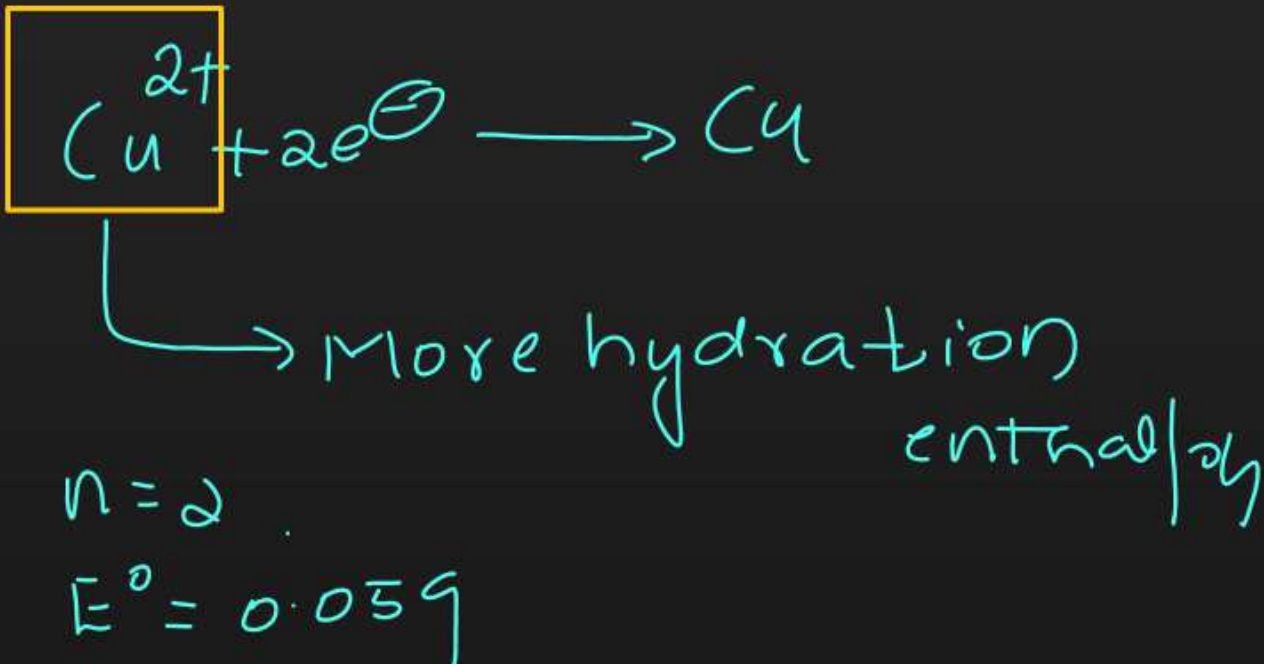 Cu²⁺ + 2e⊖ ⟶ Cu
More hydration
enthalpy
n = 2
E⁰ = 0.059